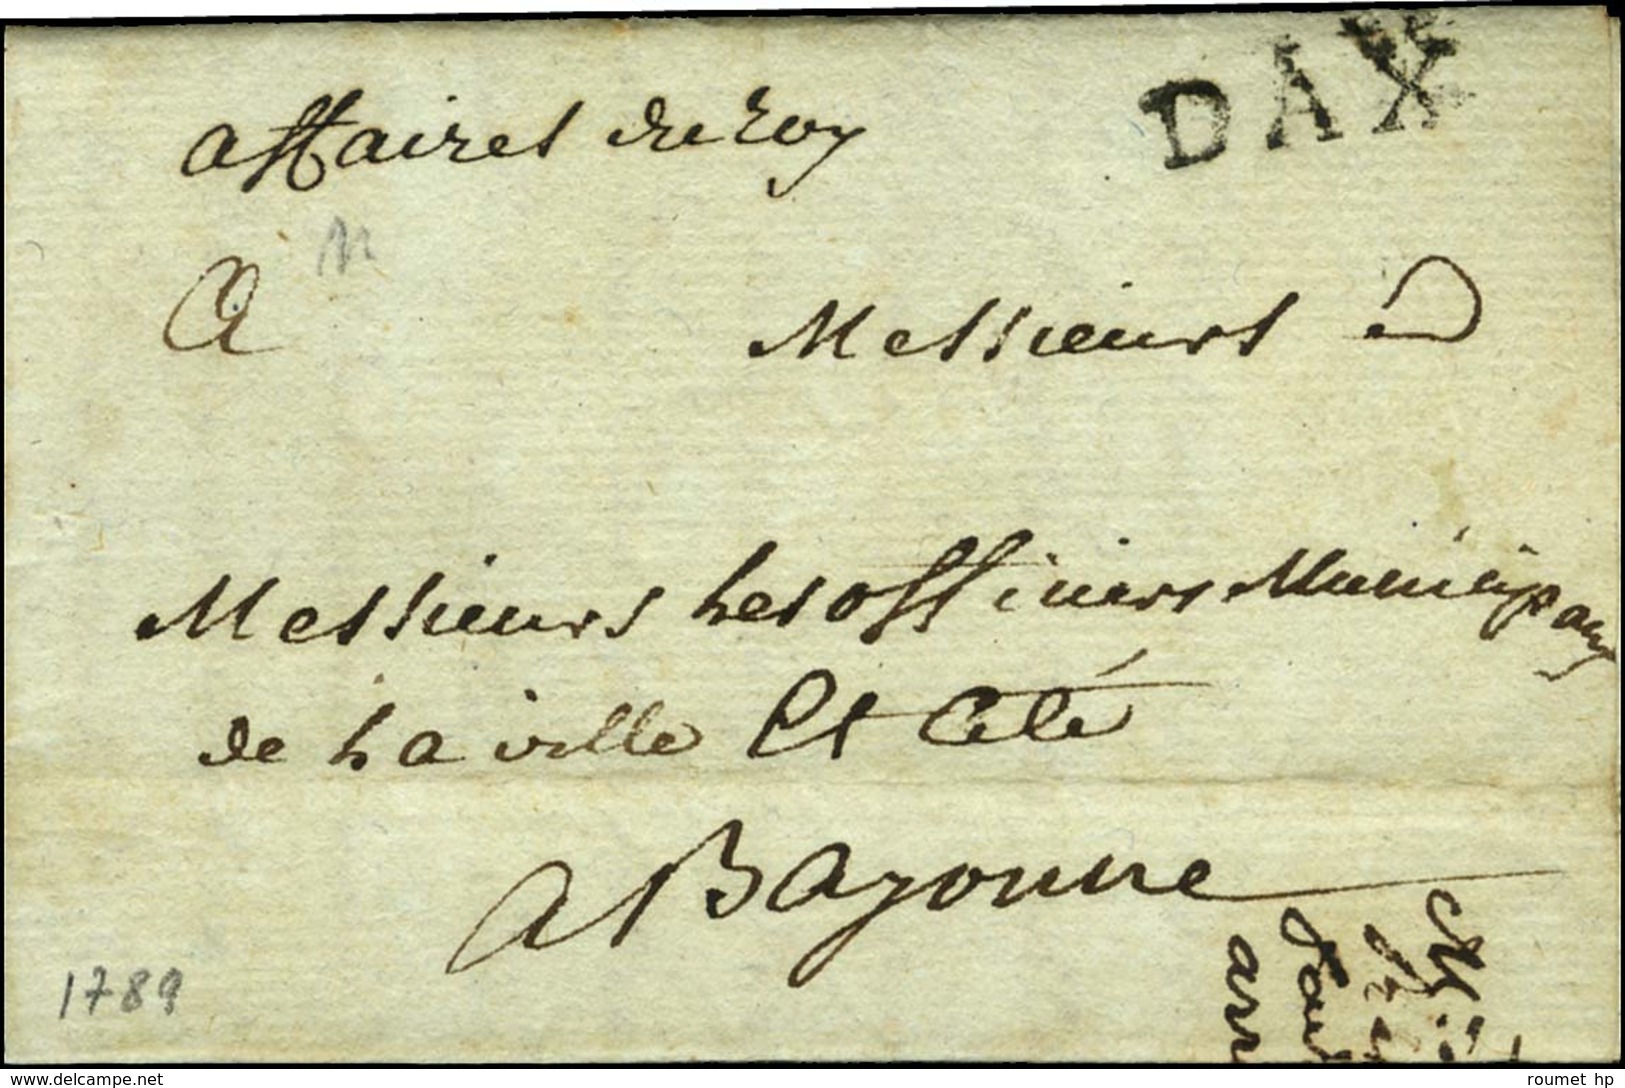 DAX
affaires du roy
A
Messieurs
Messieurs Les officiers Municipaux
de La ville Et Cité
A Bayonne
1789
delcampe.net
roumet hp